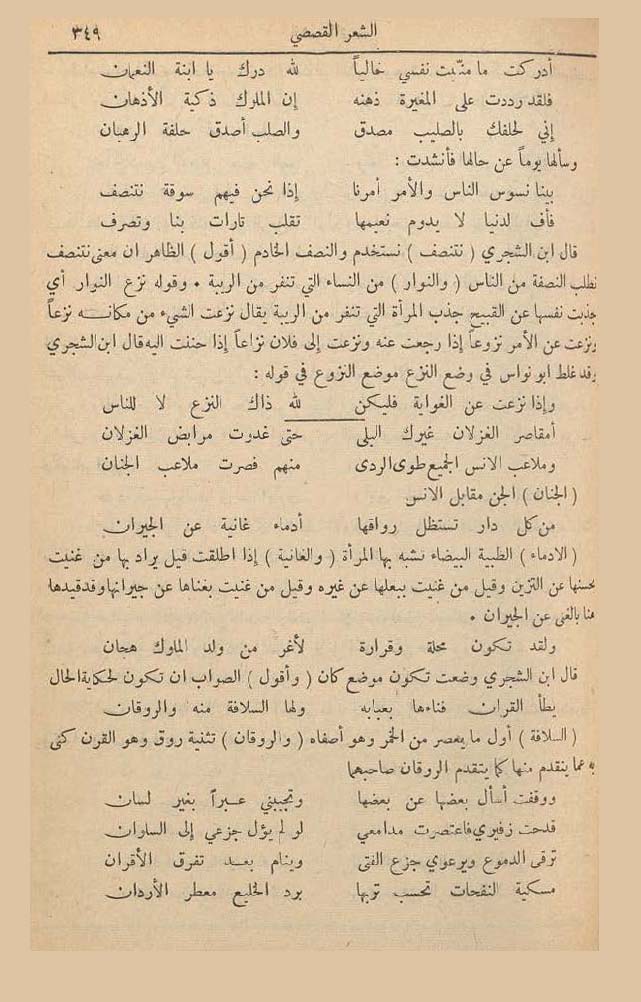 الشعر القصصي ٣٤٩
أدركت ما منّيت نفسي خالياً لله درك يا ابنة النعمان
فلقد رددت على المغيرة ذهنه إن الملوك ذكية الأذهان
إني لحلفك بالصليب مصدق والصلب أصدق حلفة الرهبان
وسألها يوماً عن حالها فأنشدت :
بينا نسوس الناس والأمر أمرنا إذا نحن فيهم سوقة نتنصف
فأف لدنيا لا يدوم نعيمها تقلب تارات بنا وتصرف
قال ابن الشجري ( نتنصف ) نستخدم والنصف الخادم ( أقول ) الظاهر ان معنى نتنصف
نطلب النصفة من الناس ( والنوار ) من النساء التي تنفر من الريبة • وقوله نزع النوار أي
جذبت نفسها عن القبيح جذب المرأة التي تنفر من الريبة يقال نزعت الشيء من مكانه نزعاً
ونزعت عن الأمر نزوعاً إذا رجعت عنه ونزعت إلى فلان نزاعاً إذا حننت اليه قال ابن الشجري
وقد غلط ابو نواس في وضع النزع موضع النزوع في قوله :
وإذا نزعت عن الغواية فليكن لله ذاك النزع لا للناس
أمقاصر الغزلان غيرك البلى حتى غدوت مرابض الغزلان
وملاعب الانس الجميع طوى الردى منهم فصرت ملاعب الجنان
( الجنان ) الجن مقابل الانس
من كل دار تستظل رواقها أدماء غانية عن الجيران
( الادماء ) الظبية البيضاء تشبه بها المرأة ( والغانية ) إذا اطلقت قيل يراد بها من غنيت
بحسنها عن التزين وقيل من غنيت ببعلها عن غيره وقيل من غنيت بغناها عن جيرانها وقد قيدها
هنا بالغنى عن الجيران •
ولقد تكون محلة وقرارة لأغر من ولد الملوك هجان
قال ابن الشجري وضعت تكون موضع كان ( وأقول ) الصواب ان تكون لحكاية الحال
يطأ الفرات فناءها بعبابه ولها السلافة منه والروقان
( السلافة ) أول ما يعصر من الخمر وهو أصفاه ( والروقان ) تثنية روق وهو القرن كنى
به عما يتقدم منها كما يتقدم الروقان صاحبهما
ووقفت أسأل بعضها عن بعضها وتجيبني عبراً بغير لسان
قدحت زفيري فاعتصرت مدامعي لو لم يؤل جزعي إلى السلوان
ترقى الدموع ويرعوي جزع الفتى وينام بعد تفرق الأقران
مسكية النفحات تحسب تربها برد الخليع معطر الأردان